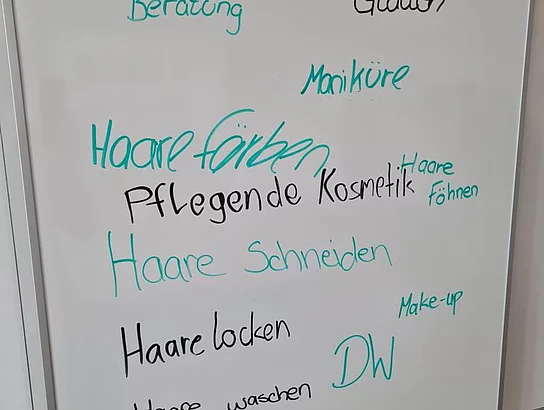 Beratung
Maniküre
Haare färben
Haare
Föhnen
Pflegende Kosmetik
Haare Schneiden
Make-up
Haare locken
DW
Haare waschen